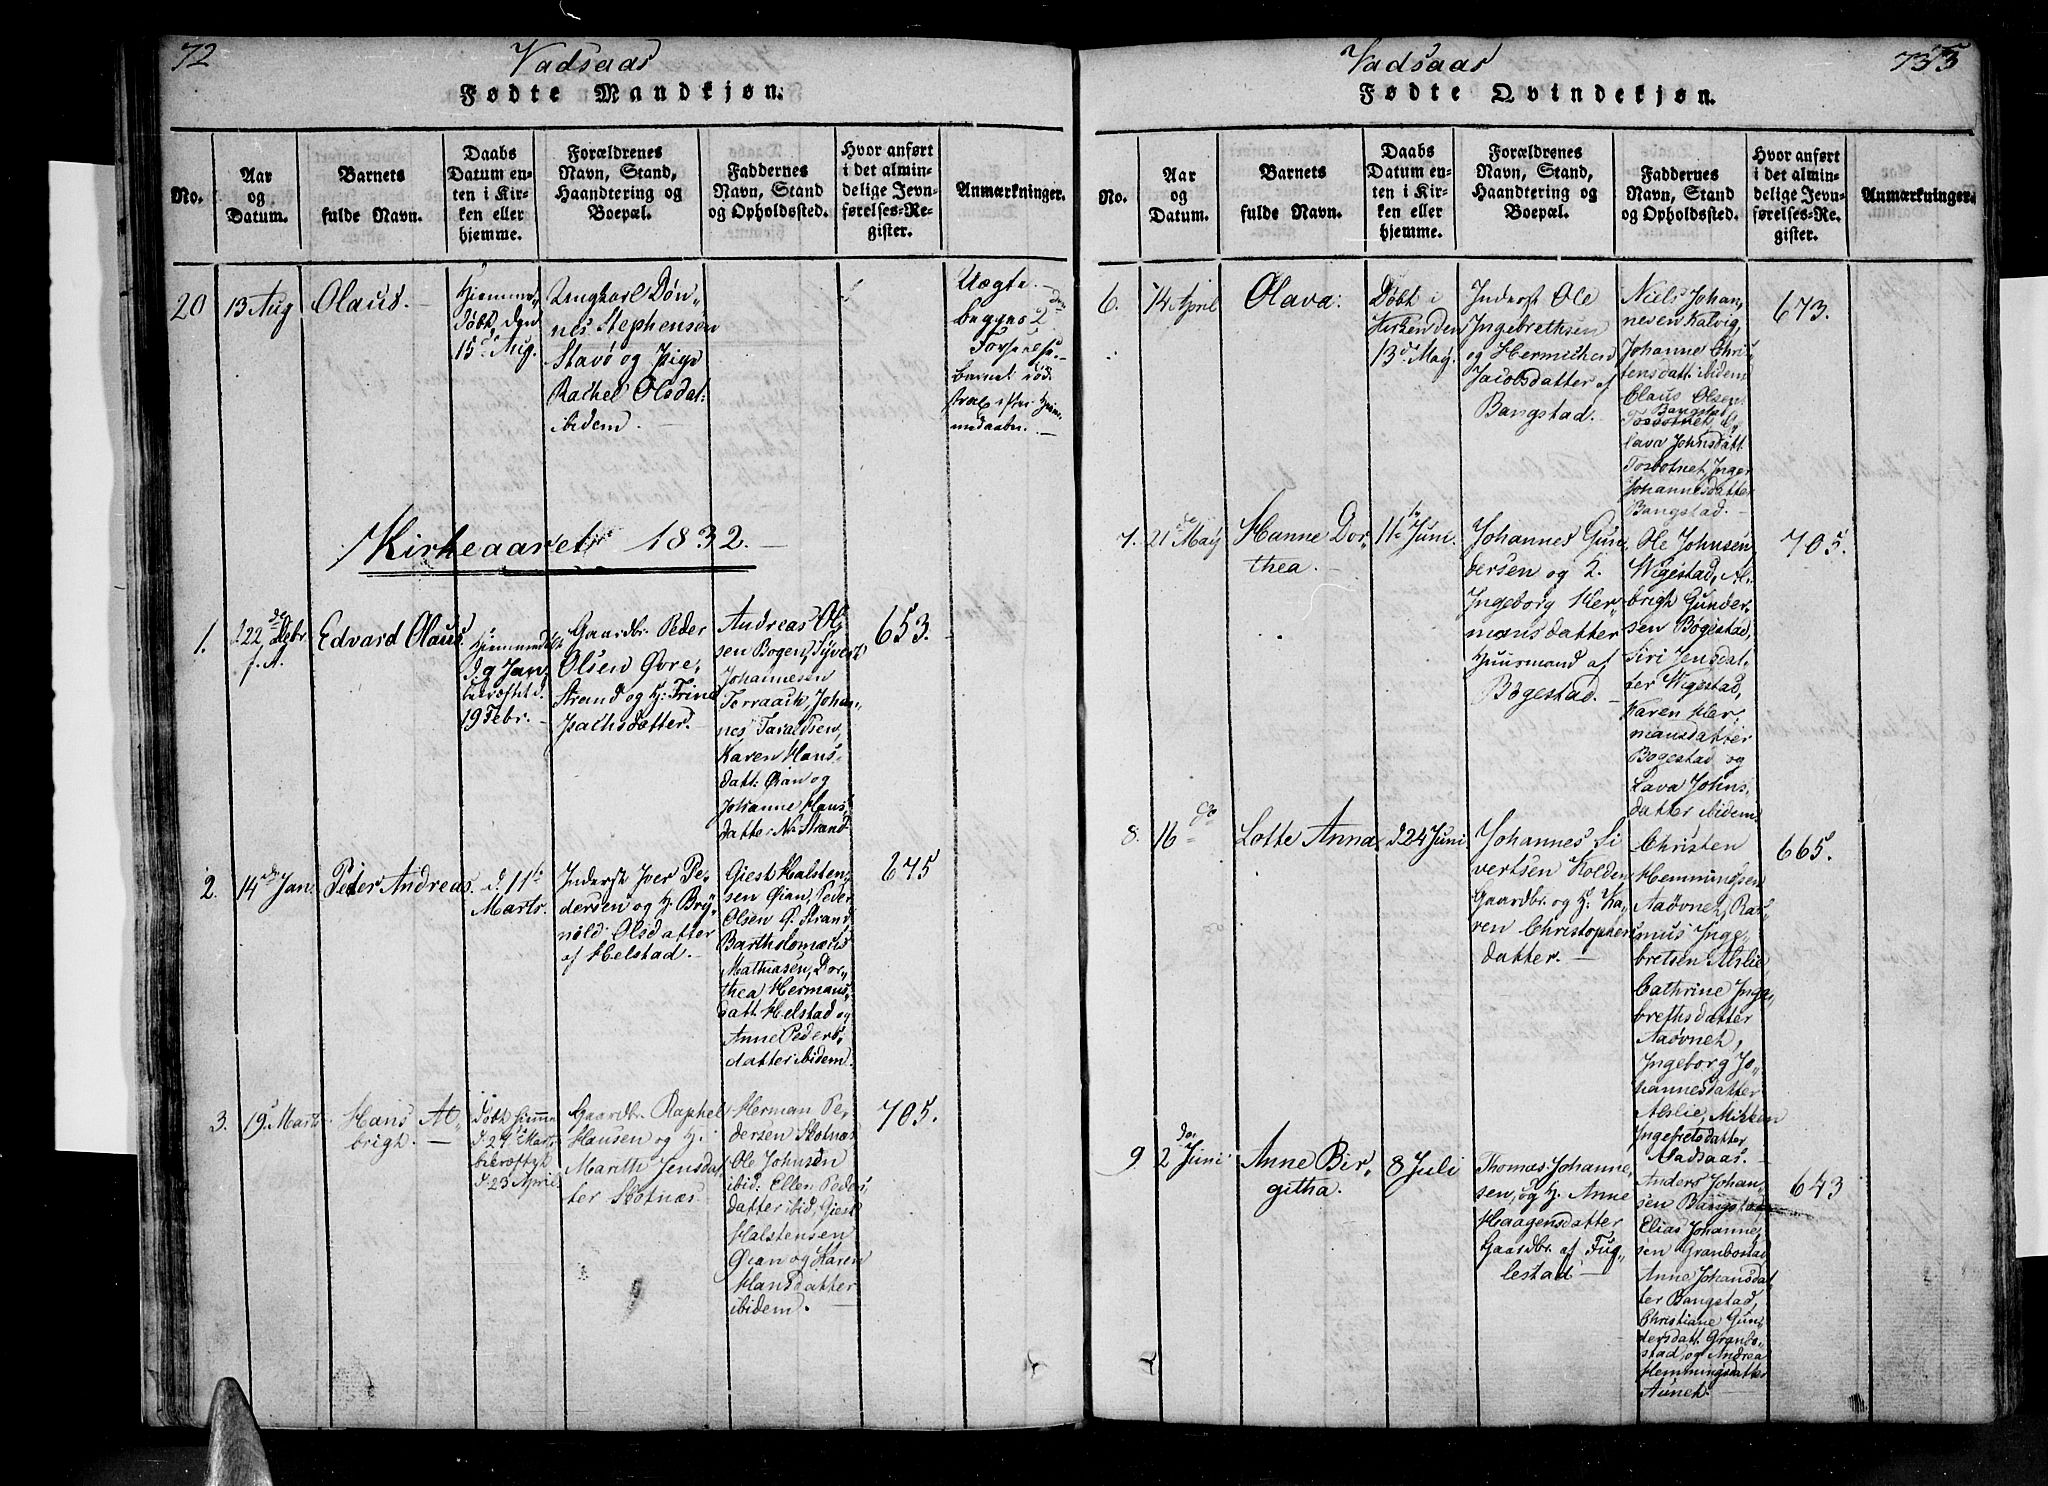 72
Vadsaas
Fødte Mandkjøn.
No.
Aar
og
Datum.
Barnets
fulde Navn.
Daabs
Datum en-
ten i Kir-
ken eller
hjemme.
Forældrenes
Navn, Stand,
Haandtering og
Boepæl.
Faddernes
Navn, Stand
og Opholdssted.
Hvor anført
i det almin-
delige Jevn-
førelses-Re-
gister.
Anmærkninger.
20
13 Aug
Olaus.
Hjemme-
døbt, den
15d. Aug.
Ungkarl Døn-
nes Stephensen
Stavø og Pige
Rachel Olsdat:
ibidem.
Uægte
begges 2den
Forseelse
barnet død
strax efter Hjem-
medaaben.
Kirkeaaret 1832.
1.
d 22de Debr.
f. A.
Edvard Olaus
Hjemmedøbt
d. 9 Jan
bekræftet d.
19 Febr.
Gaardbr. Peder
Olsen Øvre-
Strand og H: Trine
Isachsdatter.
Andreas Ol-
sen Bogen, Syvert
Johannesen
Terraack, Johan-
nes Taraldsen,
Karen Hans-
datt. Øian og
Johanne Hans-
datter N. Strand
653.
2.
14de Jan.
Peder Andreas.
d. 11te
Marts.
Inderst Iver Pe-
dersen og H. Bry-
nild Olsdatter
af Helstad.
Giest Halsten-
sen Øian, Peder
Olsen Ø: Strand
Bartholomæus
Mathiasen, Dor-
thea Hermans-
datt. Helstad og
Anne Peders-
datter ibidem.
675
3.
19d Marts
Hans Al-
brigt.
døbt hjemme
d 24d Marts
bekræftet
d 23 April
Gaardbr. Raphel
Hansen og H:
Marith Jensdat-
ter Skotnæs.
Herman Pe-
dersen Skotnæs
Ole Johnsen
ibid: Ellen Peders-
datter ibid, Giest
Halstensen
Øian og Karen
Hansdatter
ibidem.
705.
Vadsaas
73
Fødte Qvindekjøn.
No.
Aar
og
Datum.
Barnets
fulde Navn.
Daabs
Datum en-
ten i Kir-
ken eller
hjemme.
Forældrenes
Navn, Stand,
Haandtering og
Boepæl.
Faddernes
Navn, Stand
og Opholdssted.
Hvor anført
i det almin-
delige Jevn-
førelses-Re-
gister.
Anmærkninger.
6.
14 April
Olava.
Døbt i
Kirken den
13d. May.
Inderst Ole
Ingebrethsen
og Hermichen
Jacobsdatter af
Bangstad.
Niels Johan-
nesen Kalvig,
Johanne Chris-
tensdatt. ibidem
Claus Olsen
Bangstad
Tosbotnet, O-
lava Johnsdatt.
Tosbotnet, Inger
Johannesdatter
Bangstad.
673.
7.
21de May
Hanne Dor-
thea.
11te Juni.
Johannes Gun-
dersen og H.
Ingeborg Her-
mansdatter
Huusmand af
Bøgestad.
Ole Johnsen
Wigestad, Al-
brigt Gunder-
sen Bøgestad,
Siri Jensdat-
ter Wigestad,
Karen Her-
mansdatter
Bogestad og
Lava Johns-
datter ibidem.
705.
8.
16 do
Lotte Anna
d 24 Juni
Johannes Si-
vertsen Kolden
Gaardbr. og H. Ka-
ren Christophers-
datter.
Christen
Hemmingsen
Aaøvnet, Ras-
mus Inge-
bretsen Alslie
Cathrine Inge-
brethsdatter
Aaøvnet,
Ingeborg Jo-
hannesdatter
Alslie, Mikken
Ingebretsdatter
Madsaas.
665.
9.
2den Juni
Anne Bir-
githa.
8 Juli
Thomas Johanne-
sen, og H. Anne
Haagensdatter
Gaardbr. af Fug-
lestad
Anders Johan-
sen Bangstad
Elias Johanne-
sen Granbostad
Anne Johansdat
ter Bangstad,
Christiane Gun-
dersdatt. Granbo-
stad, og Andrea
Hemmingsdatter
Aunet.
643